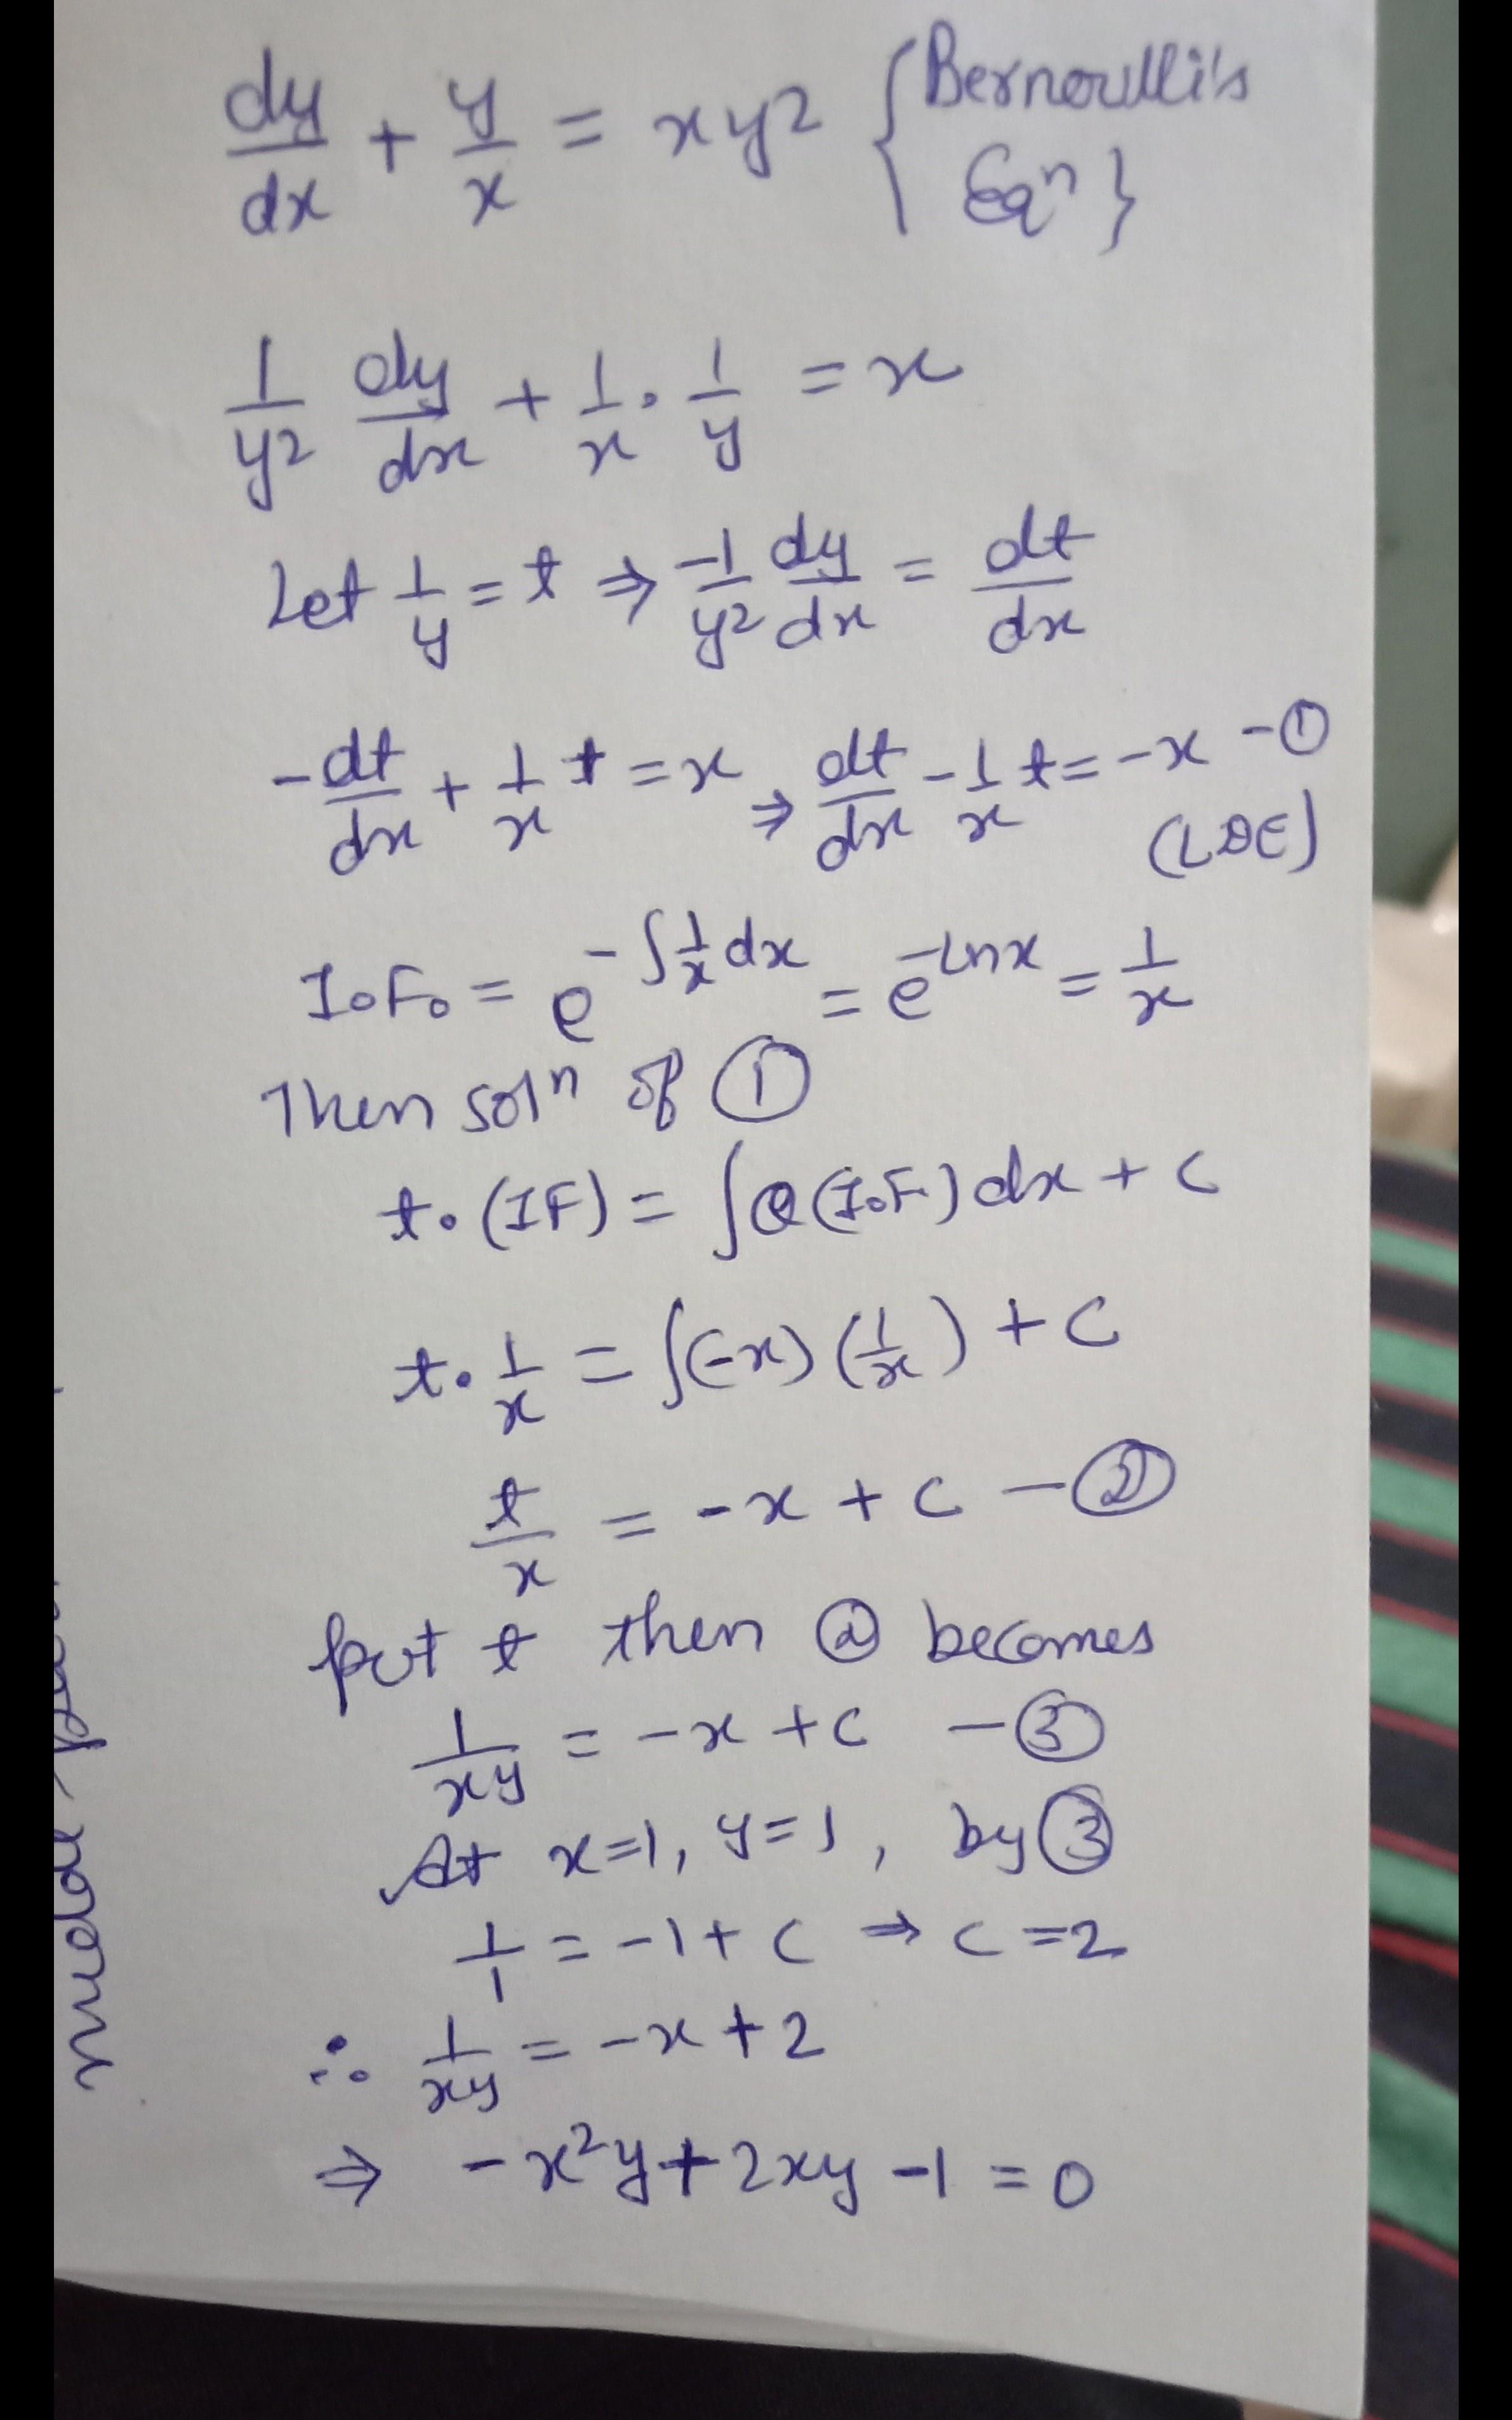 dy/dx + y/x = xy² {Bernoulli's Eqⁿ}
1/y² dy/dx + 1/x · 1/y = x
Let 1/y = t ⇒ -1/y² dy/dx = dt/dx
-dt/dx + 1/x t = x ⇒ dt/dx - 1/x t = -x - ①
(LDE)
I.F. = e^(-∫1/x dx) = e^(-lnx) = 1/x
Then solⁿ of ①
t. (IF) = ∫Q(I.F) dx + c
t. 1/x = ∫(-x) (1/x) + c
t/x = -x + c - ②
put t then ② becomes
1/xy = -x + c - ③
At x=1, y=1, by ③
1/1 = -1 + c ⇒ c = 2
∴ 1/xy = -x + 2
⇒ -x²y + 2xy - 1 = 0